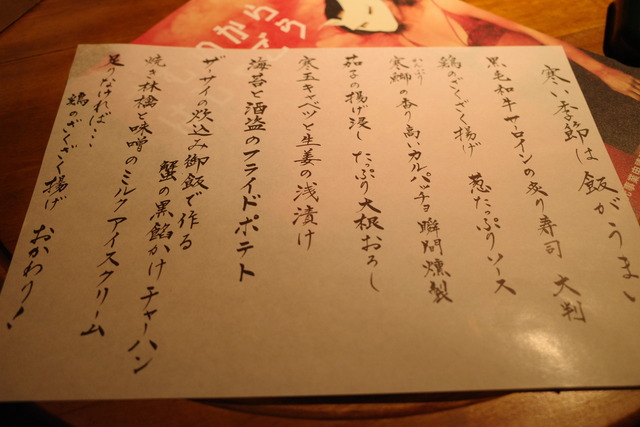 寒い季節は飯がうまい
黒毛和牛サーロインの炙り寿司 大判
鶏のざくざく揚げ 葱たっぷりソース
寒鰤の香り高いカルパッチョ 瞬間燻製
茄子の揚げ浸し たっぷり大根おろし
寒玉キャベツと生姜の浅漬け
海苔と酒盗のフライドポテト
ザーサイの炊込み御飯で作る
蟹の黒餡かけチャーハン
焼き林檎と味噌のミルクアイスクリーム
足りなければ・・・
鶏のざくざく揚げ おかわり!